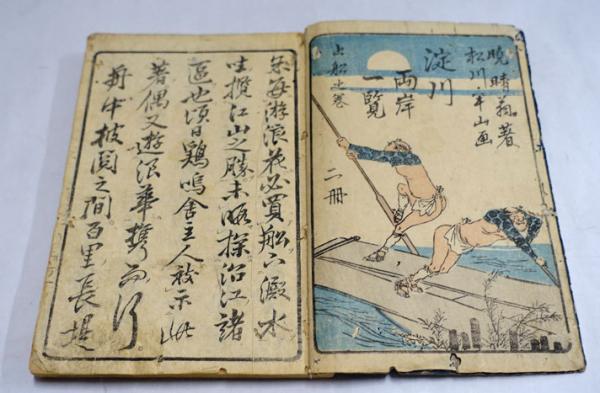 暁晴翁著
松川・半山画
淀川
両岸
一覧
上船之巻
二冊
余毎游浪花必買船下澱水
攬江山之勝未暇探沿江諸
區也頃日鶏鳴舎主人示此
著偶又遊浪華携而行
舟中披図之間百里長堤